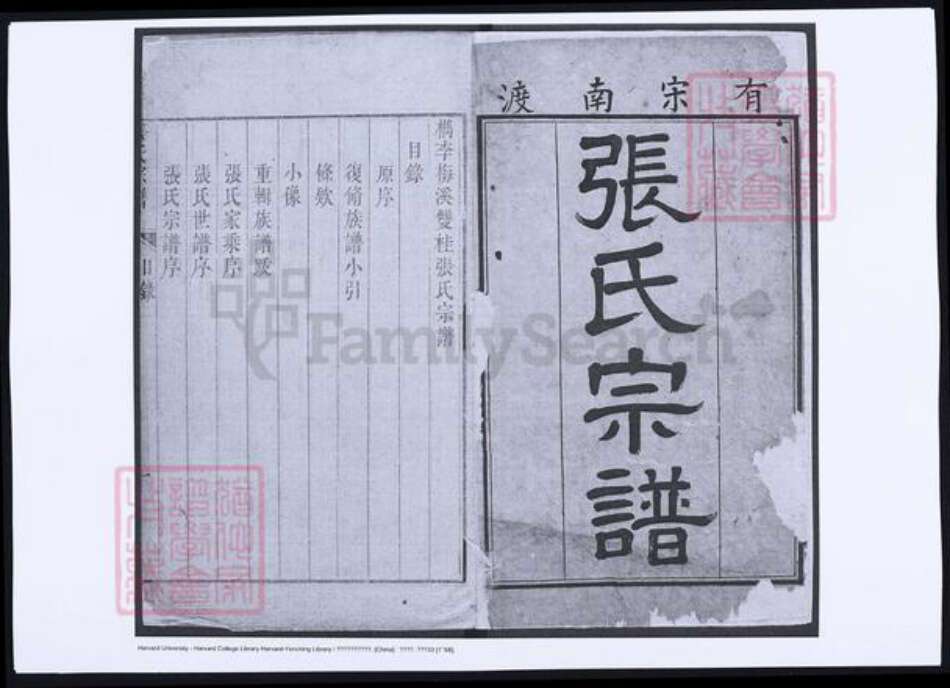 有宋南渡
張氏宗譜
檇李梅溪雙桂張氏宗譜
目錄
原序
復脩族譜小引
條欵
小像
重輯族譜跋
張氏家乘序
張氏世譜序
張氏宗譜序
目錄
FamilySearch
Harvard University - Harvard College Library Harvard-Yenching Library / ??????????. (China)